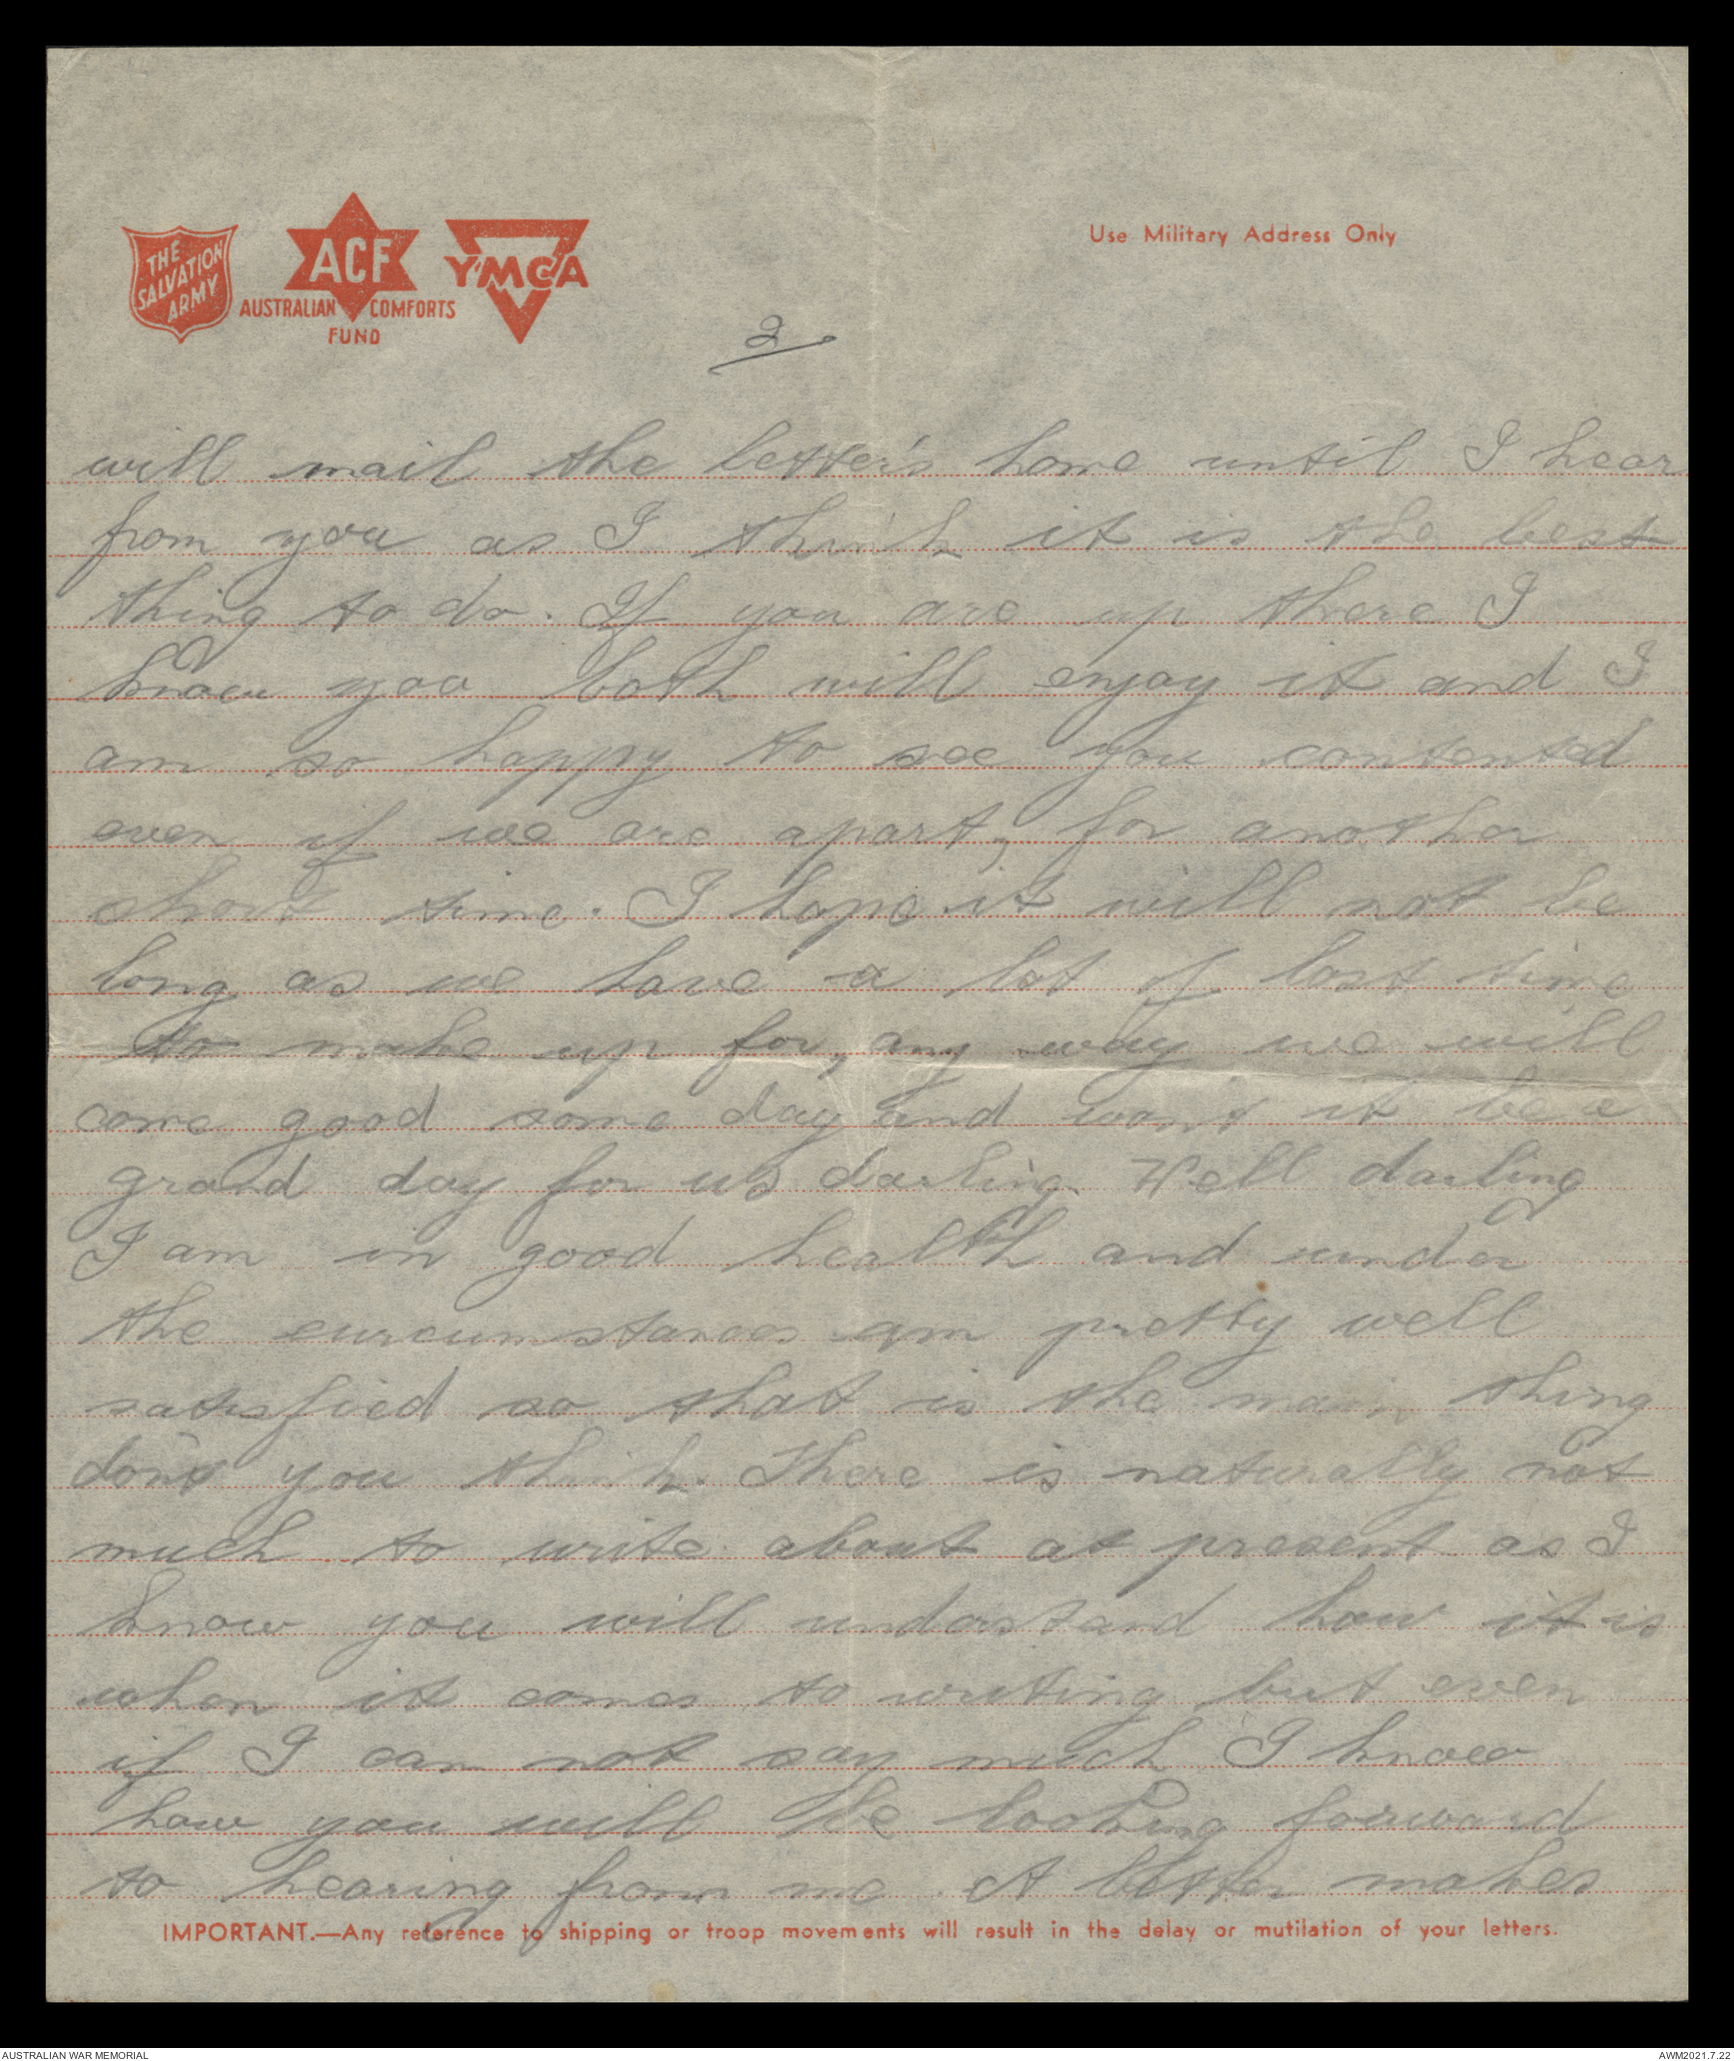 THE
SALVATION
ARMY
ACF
AUSTRALIAN COMFORTS
FUND
YMCA
Use Military Address Only
2
will mail the letter's home until I hear
from you as I think it is the best
thing to do. If you are up there I
know you both will enjoy it and I
am so happy to see you contented
even if we are apart, for another
short time. I hope it will not be
long as we have a lot of lost time
to make up for, any way we will
come good some day and won't it be a
grand day for us darling. Well darling
I am in good health and under
the curcumstances am pretty well
satisfied so that is the main thing
don't you think. There is naturally not
much to write about at present as I
know you will understand how it is
when it comes to writing but even
if I can not say much I know
how you will be looking forward
to hearing from me. A letter makes
IMPORTANT.—Any reference to shipping or troop movements will result in the delay or mutilation of your letters.
AUSTRALIAN WAR MEMORIAL
AWM2021.7.22